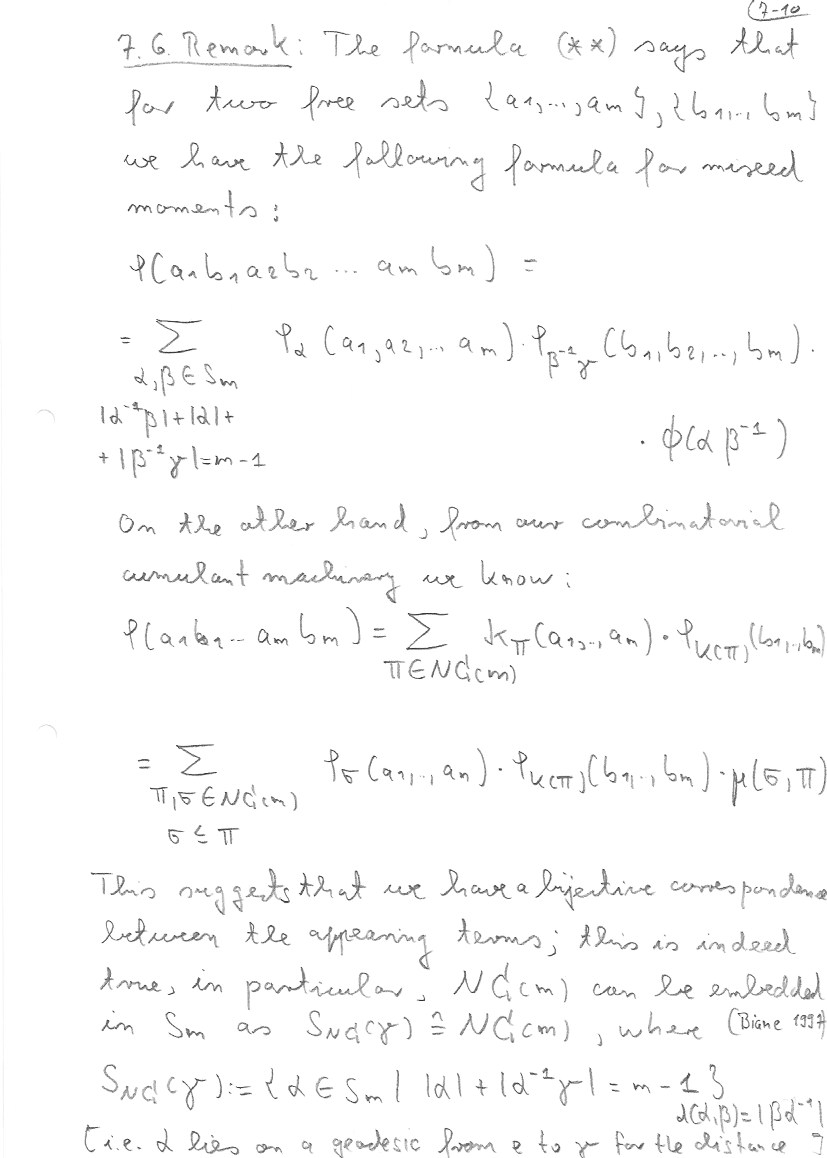 7-10
7.6. Remark: The formula (**) says that
for two free sets {a1,...,am}, {b1,..., bm}
we have the following formula for mixed
moments:
φ(a1b1a2b2 ... am bm) =
= Σ φα(a1,a2,... am)·φβ⁻¹γ(b1,b2,..., bm)·
α,β∈Sm
|α⁻¹β|+|α|+
+|β⁻¹γ|=m-1
· ϕ(αβ⁻¹)
On the other hand, from our combinatorial
cumulant machinery we know:
φ(a1b1... am bm) = Σ kπ(a1,..., am)·φK(π)(b1,..., bm)
π∈NC(m)
= Σ φσ(a1,..., an)·φK(π)(b1,..., bm)·μ(σ,π)
π,σ∈NC(m)
σ≤π
This suggests that we have a bijective correspondence
between the appearing terms; this is indeed
true, in particular, NC(m) can be embedded
in Sm as SNC(γ) ≙ NC(m), where (Biane 1997)
SNC(γ):={α∈Sm| |α|+|α⁻¹γ|=m-1}
d(α,β)=|βα⁻¹|
[i.e. α lies on a geodesic from e to γ for the distance ]